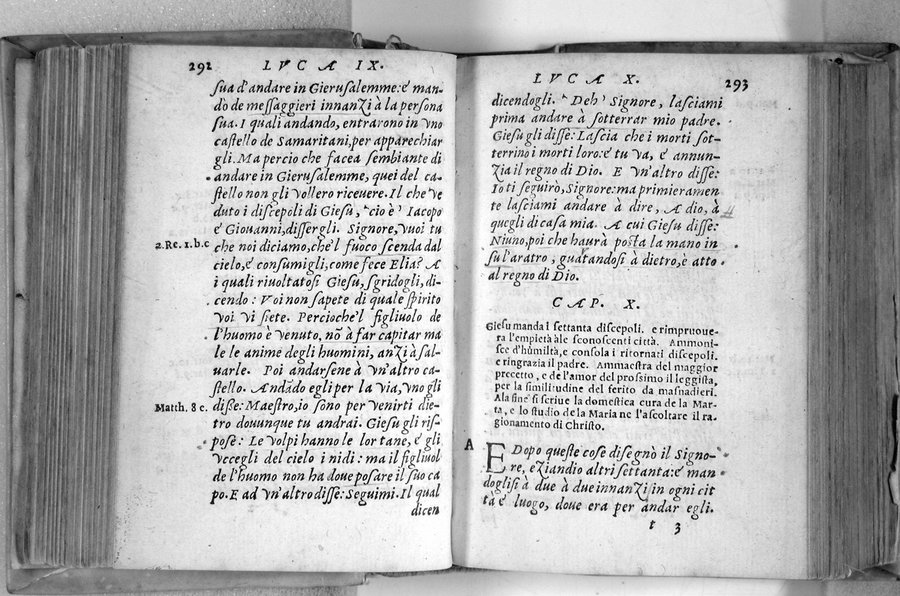 292
LVCA IX.
sua d'andare in Gierusalemme: é man-
dò de messaggieri innanzi à la persona
sua. I quali andando, entrarono in vno
castello de Samaritani, per apparechiar
gli. Ma percio che facea sembiante di
andare in Gierusalemme, quei del ca-
stello non gli vollero riceuere. Il che ve
duto i discepoli di Giesu, ‛cio è’ Iacopo
e Giouanni, dissergli. Signore, vuoi tu
2.Re. 1.b.c
che noi diciamo, che'l fuoco scenda dal
cielo, é consumigli, come fece Elia? A
i quali riuoltatosi Giesu, sgridogli, di-
cendo: Voi non sapete di quale spirito
voi vi siete. Percioche'l figliuolo de
l'huomo è venuto, nõ à far capitar ma
le le anime degli huomini, anzi à sal-
uarle. Poi andarsene à vn'altro ca-
stello. Andãdo egli per la via, vno gli
Matth. 8 c.
disse: Maestro, io sono per venirti die-
tro douunque tu andrai. Giesu gli ris-
pose: Le volpi hanno le lor tane, é gli
vccegli del cielo i nidi: ma il figliuol
de l'huomo non ha doue posare il suo ca
po. E ad vn'altro disse: Seguimi. Il qual
dicen
LVCA X.
293
dicendogli. ‛Deh’ Signore, lasciami
prima andare à sotterrar mio padre.
Giesu gli disse: Lascia che i morti sot-
terrino i morti loro: é tu va, é annun-
zia il regno di Dio. E vn'altro disse:
Io ti seguirò, Signore: ma primieramen
te lasciami andare à dire, A dio, à
quegli di casa mia. A cui Giesu disse:
Niuno, poi che haurà posta la mano in
su l'aratro, guatandosi à dietro, è atto
al regno di Dio.
CAP. X.
Giesu manda i settanta discepoli. e rimprouue-
ra l'empietà àle sconoscenti città. Ammoni-
sce d'humiltà, e consola i ritornati discepoli.
e ringrazia il padre. Ammaestra del maggior
precetto, e de l'amor del prossimo il leggista,
per la similitudine del ferito da masnadieri.
Ala fine si scriue la domestica cura de la Mar-
ta, e lo studio de la Maria ne l'ascoltare il ra-
gionamento di Christo.
A
E Dopo queste cose disegnò il Signo-
re, eziandio altri settanta: é man
dogli si à due à due innanzi in ogni cit
tà é luogo, doue era per andar egli.
t 3